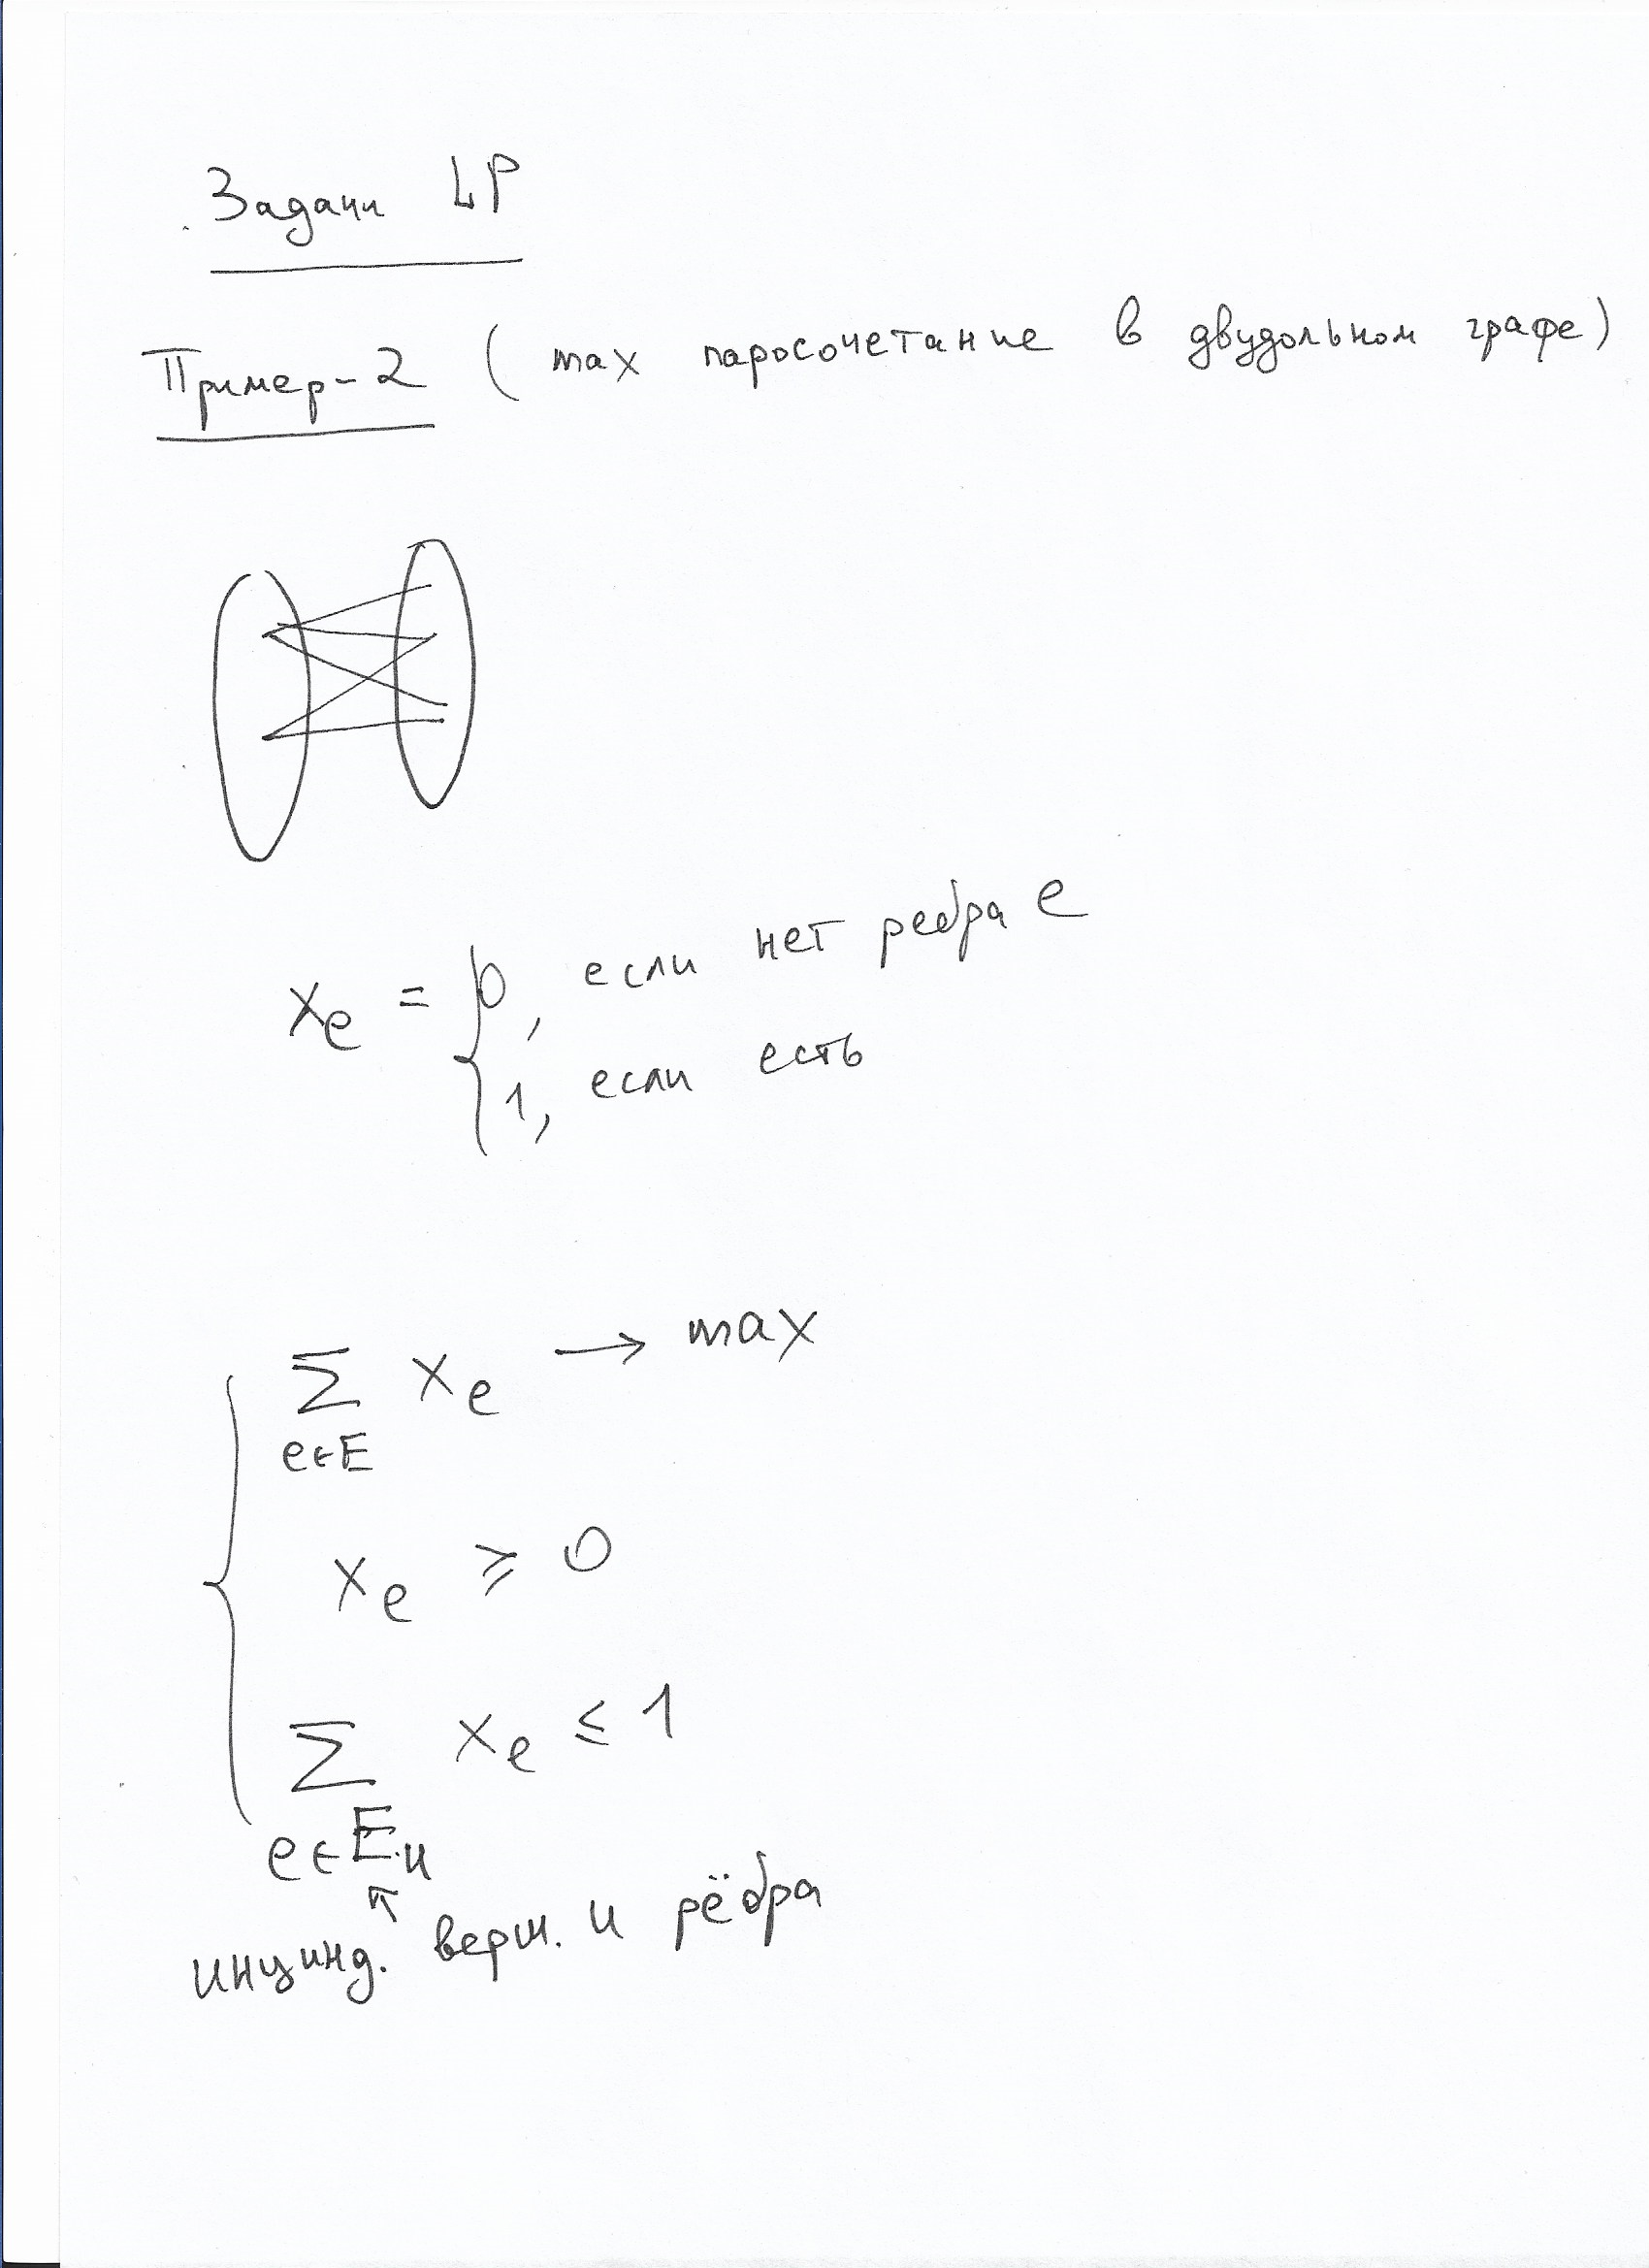 Задачи LP
Пример-2 ( max паросочетание в двудольном графе)
xₑ = { 0, если нет ребра e
1, если есть
∑ xₑ → max
e∈E
xₑ ⩾ 0
∑ xₑ ≤ 1
e∈E u
инцинд. верш. u рёбра